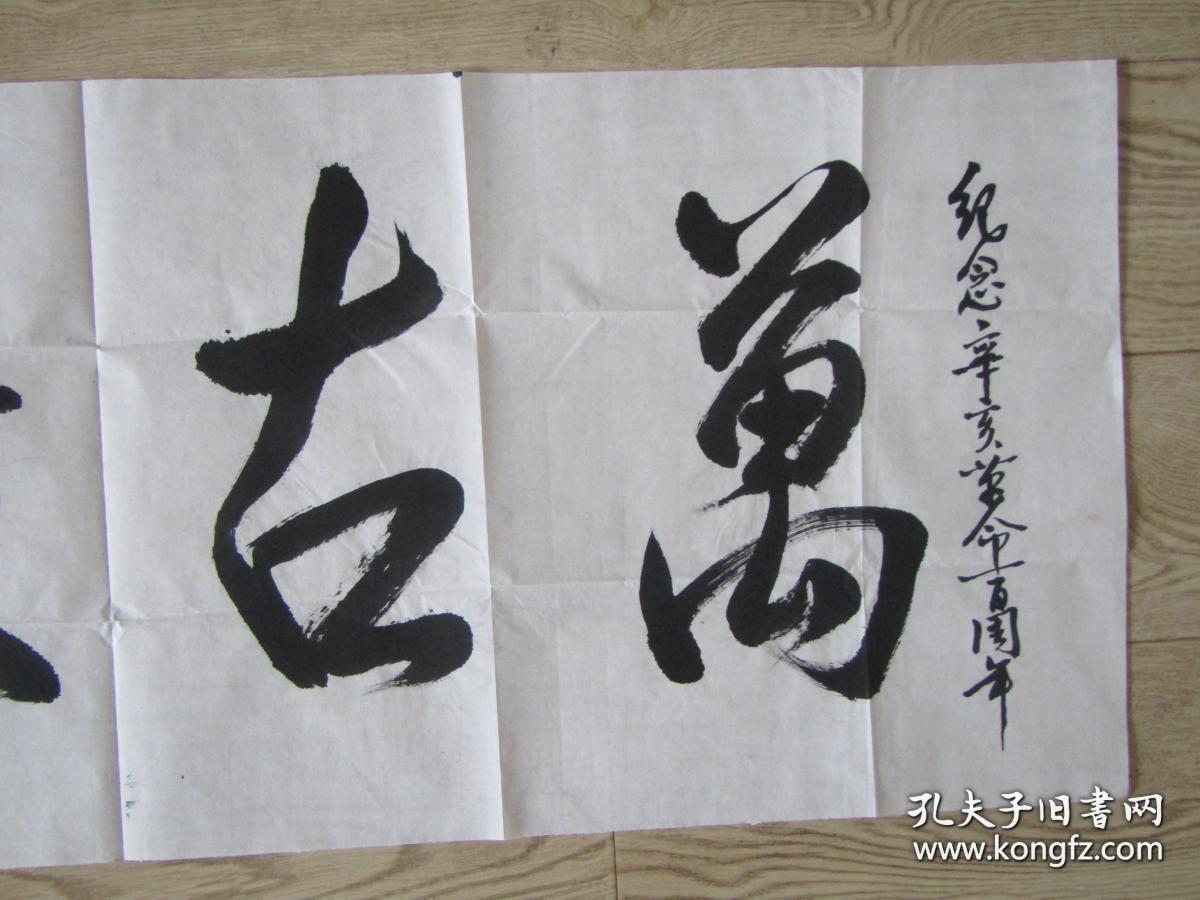 纪念辛亥革命百周年
萬古
孔夫子旧書网
www.kongfz.com